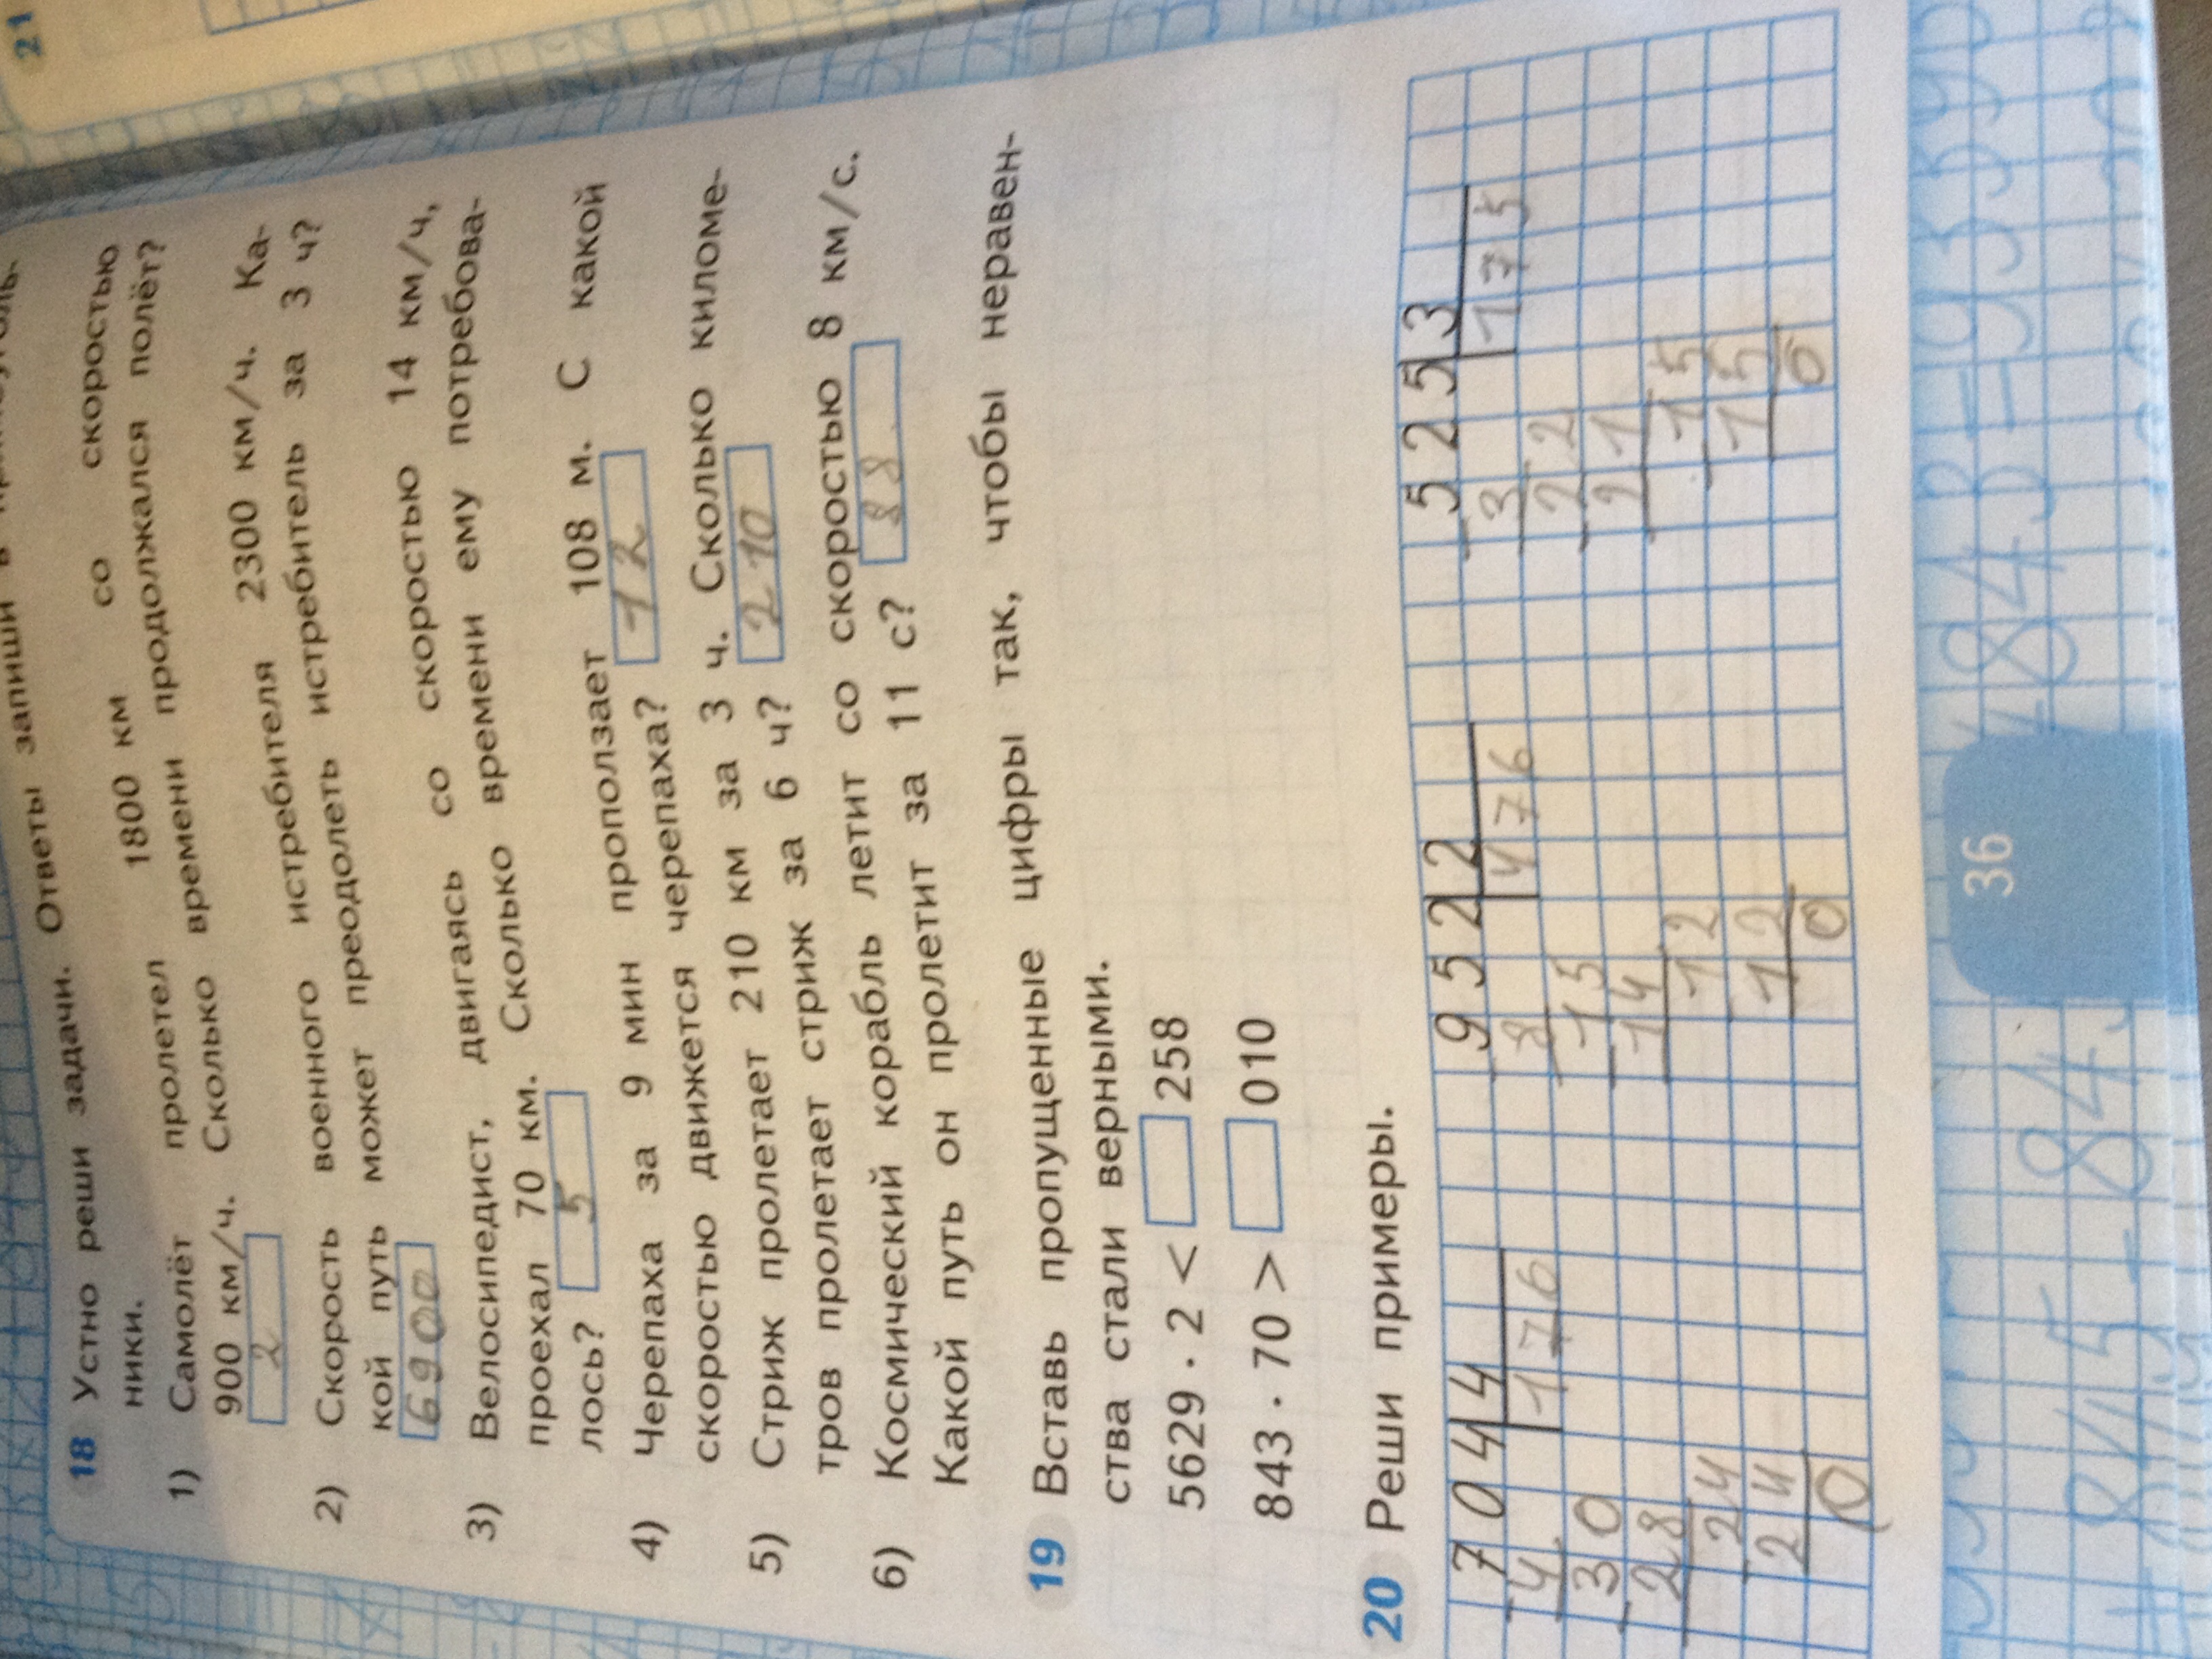 21
18 Устно реши задачи. Ответы запиши в
ники.
1) Самолёт пролетел 1800 км со скоростью
900 км/ч. Сколько времени продолжался полёт?
2
2) Скорость военного истребителя 2300 км/ч. Ка-
кой путь может преодолеть истребитель за 3 ч?
6900
3) Велосипедист, двигаясь со скоростью 14 км/ч,
проехал 70 км. Сколько времени ему потребова-
лось? 5
4) Черепаха за 9 мин проползает 108 м. С какой
скоростью движется черепаха? 12
5) Стриж пролетает 210 км за 3 ч. Сколько киломе-
тров пролетает стриж за 6 ч? 210
6) Космический корабль летит со скоростью 8 км/с.
Какой путь он пролетит за 11 с? 88
19 Вставь пропущенные цифры так, чтобы неравен-
ства стали верными.
5629 · 2 < 258
843 · 70 > 010
20 Реши примеры.
7044 4 9522 2 525 3
4 176 8 476 3 175
30 15 22
28 14 21
24 12 15
24 12 15
0 0 0
36